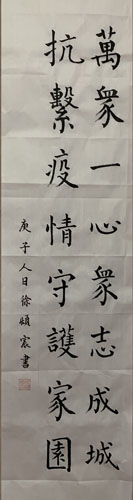 萬衆一心衆志成城
抗繫疫情守護家園
庚子人日徐頌宸書